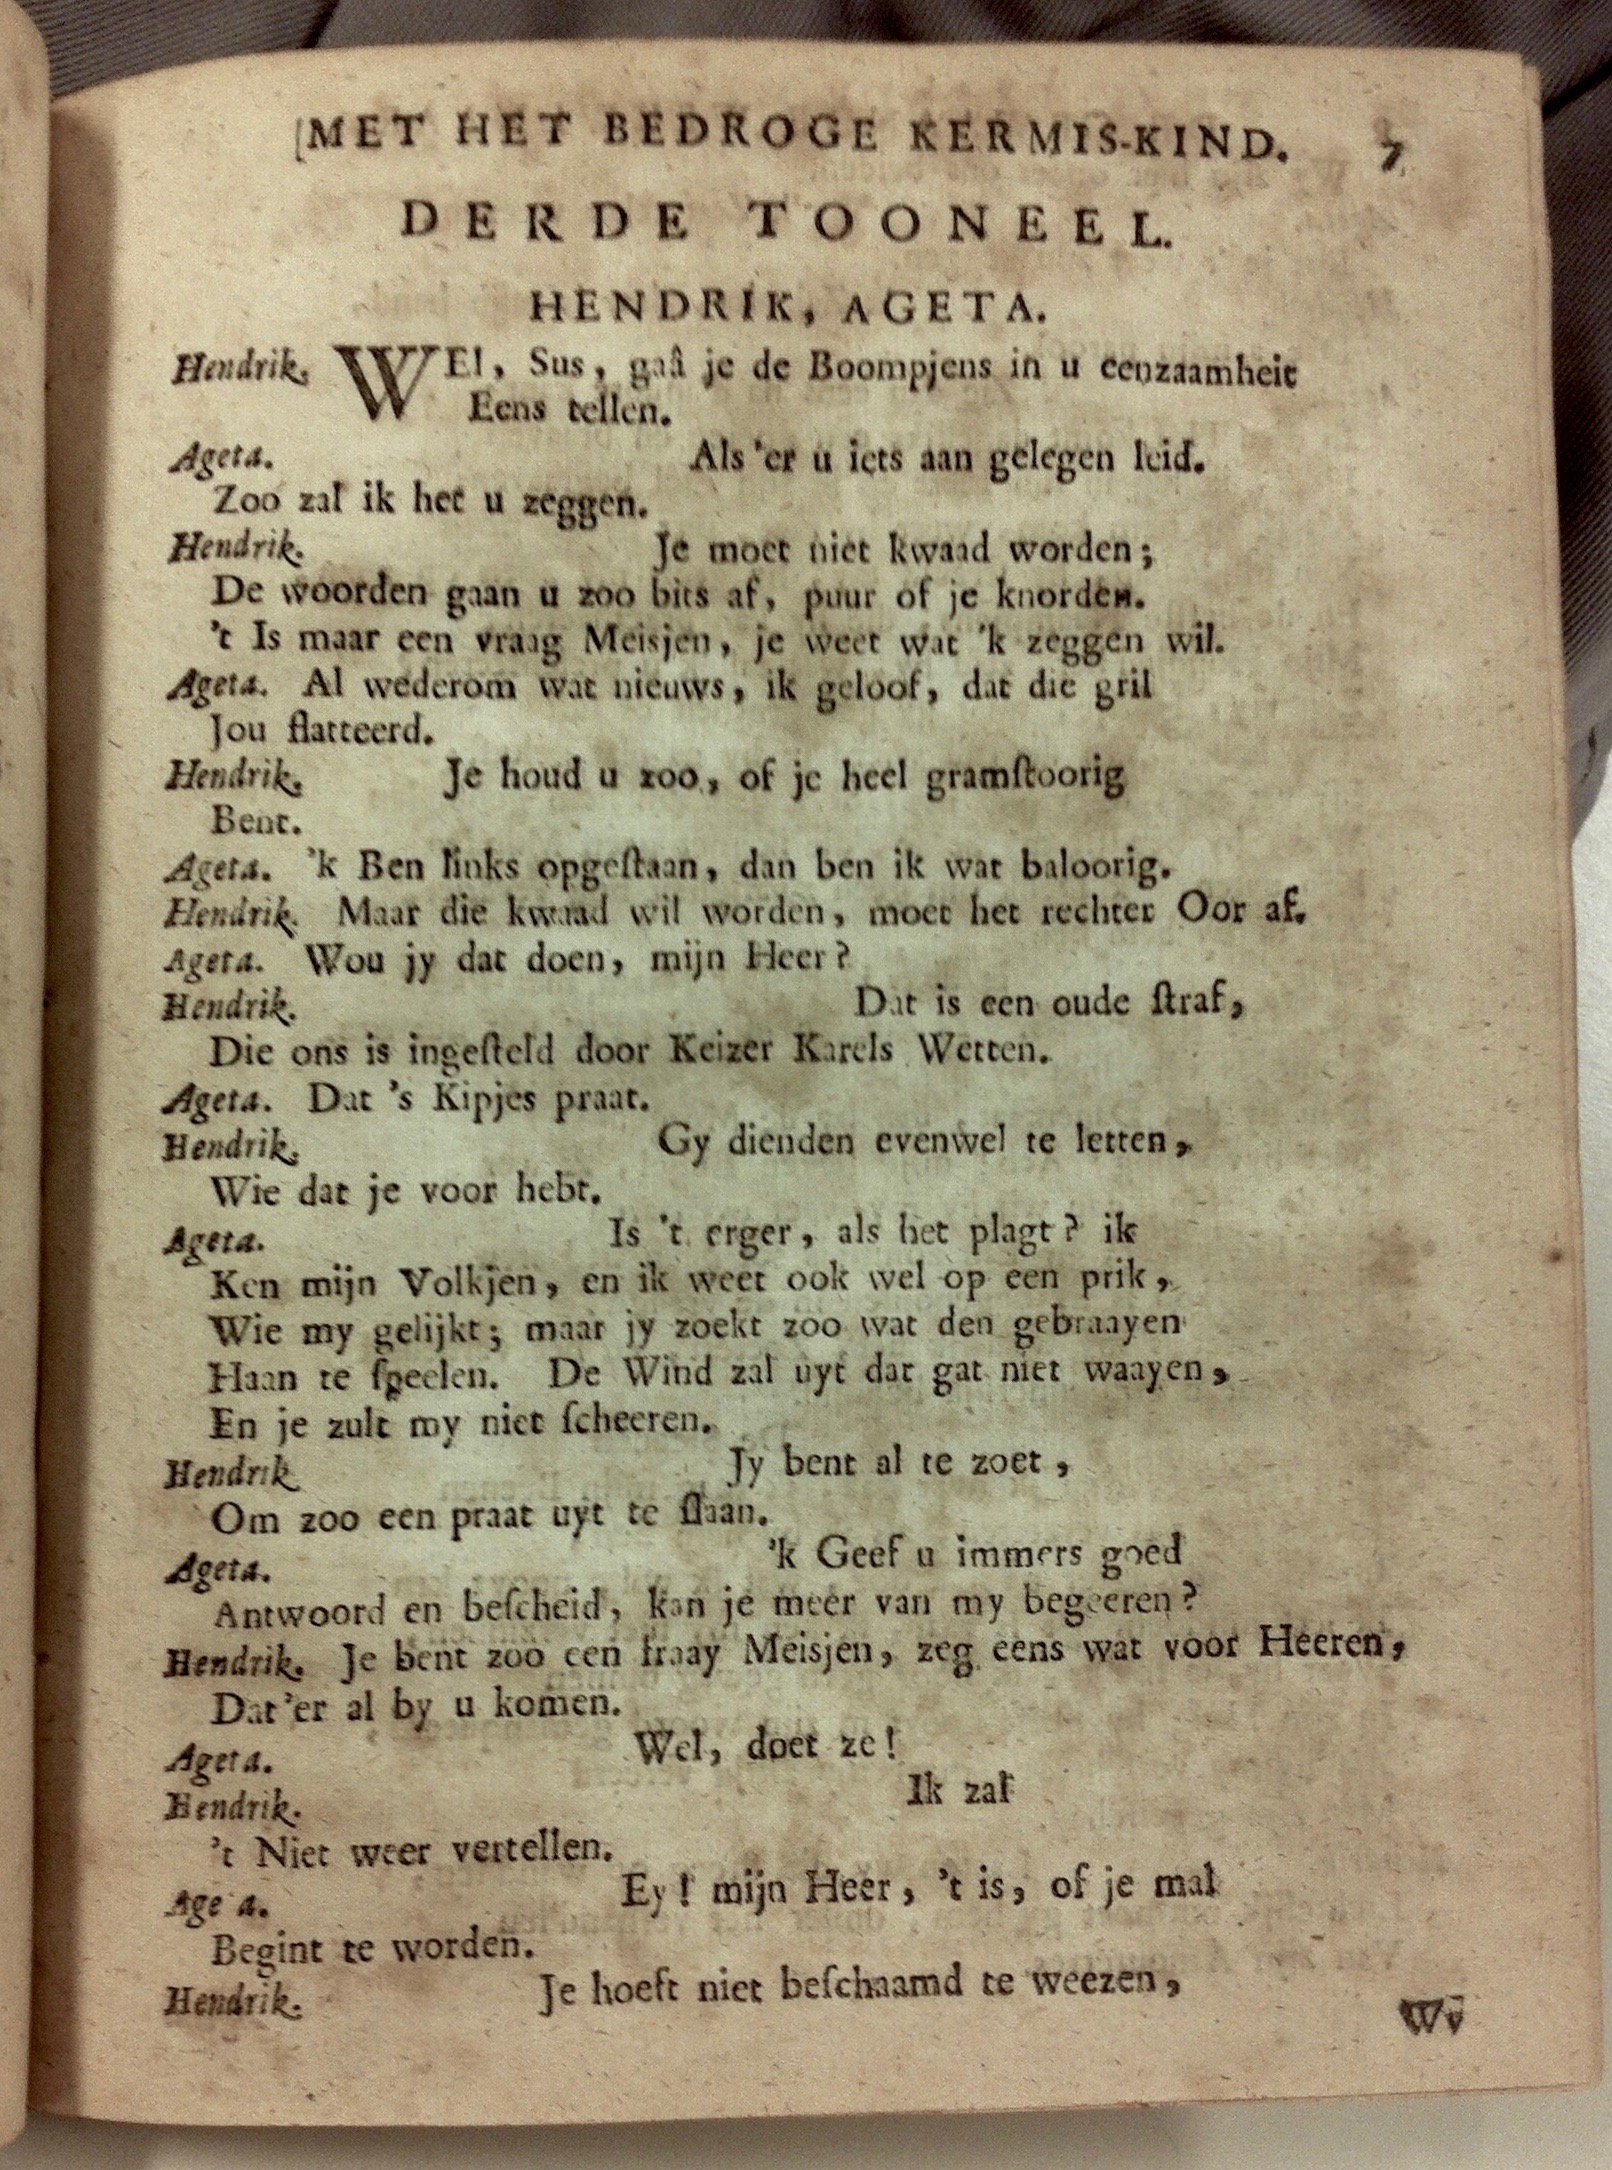 MET HET BEDROGE KERMIS-KIND. 7
DERDE TOONEEL.
HENDRIK, AGETA.
Hendrik. WEl, Sus, gaâ je de Boompjens in u eenzaamheit
Eens tellen.
Ageta. Als 'er u iets aan gelegen leid.
Zoo zal ik het u zeggen.
Hendrik. Je moet niet kwaad worden;
De woorden gaan u zoo bits af, puur of je knorden.
't Is maar een vraag Meisjen, je weet wat 'k zeggen wil.
Ageta. Al wederom wat nieuws, ik geloof, dat die gril
Jou flatteerd.
Hendrik. Je houd u zoo, of je heel gramſtoorig
Bent.
Ageta. 'k Ben links opgeſtaan, dan ben ik wat baloorig.
Hendrik. Maar die kwaad wil worden, moet het rechter Oor af.
Ageta. Wou jy dat doen, mijn Heer?
Hendrik. Dat is een oude ſtraf,
Die ons is ingeſteld door Keizer Karels Wetten.
Ageta. Dat 's Kipjes praat.
Hendrik. Gy dienden evenwel te letten,
Wie dat je voor hebt.
Ageta. Is 't erger, als het plagt? ik
Ken mijn Volkjen, en ik weet ook wel op een prik,
Wie my gelijkt; maar jy zoekt zoo wat den gebraayen
Haan te ſpeelen. De Wind zal uyt dat gat niet waayen,
En je zult my niet ſcheeren.
Hendrik Jy bent al te zoet,
Om zoo een praat uyt te ſlaan.
Ageta. 'k Geef u immers goed
Antwoord en beſcheid, kan je meer van my begeeren?
Hendrik. Je bent zoo een fraay Meisjen, zeg eens wat voor Heeren,
Dat 'er al by u komen.
Ageta. Wel, doet ze!
Hendrik. Ik zal
't Niet weer vertellen.
Age a. Ey! mijn Heer, 't is, of je mal
Begint te worden.
Hendrik. Je hoeft niet beſchaamd te weezen,